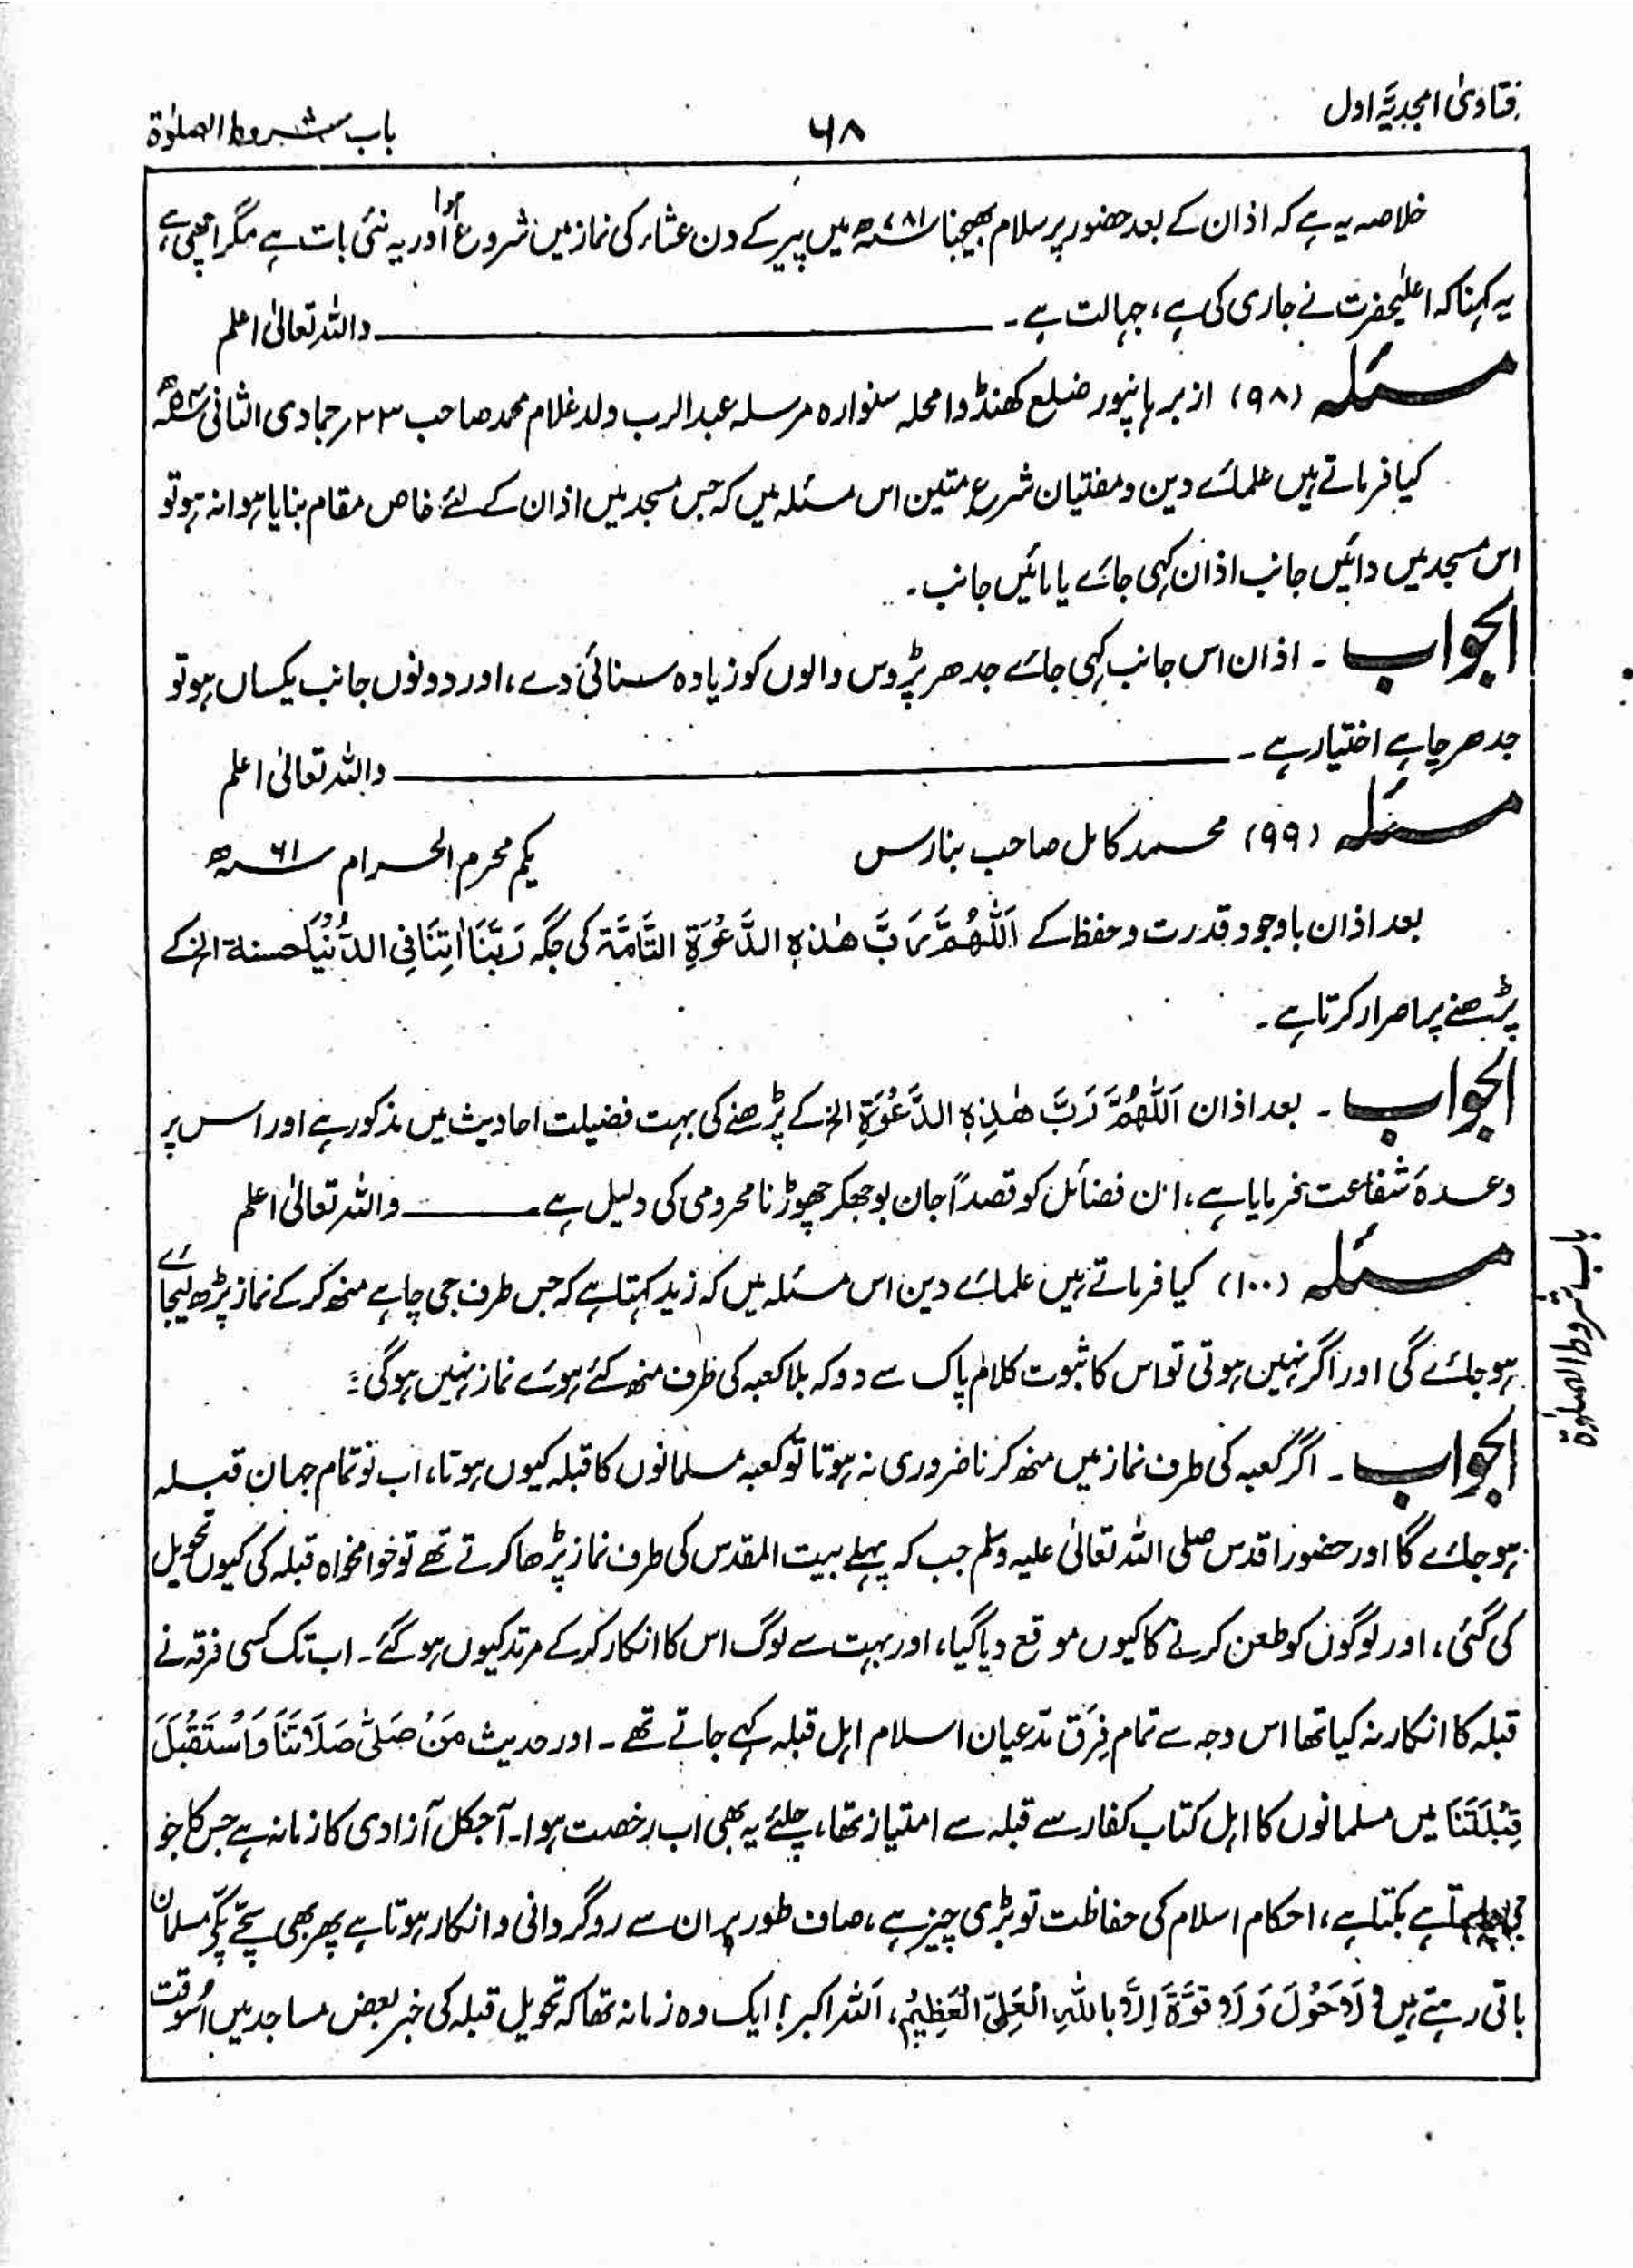 فتاویٰ امجدیہ اول
۶۸
باب شروط الصلوٰۃ
خلاصہ یہ ہے کہ اذان کے بعد حضور پر سلام بھیجنا ۷۸۱ھ میں پیر کے دن عشاء کی نماز میں شروع ہوا اور یہ نئی بات ہے مگر اچھی ہے،
یہ کہنا کہ اعلیٰحضرت نے جاری کی ہے، جہالت ہے ۔ واللہ تعالیٰ اعلم
مسئلہ (۹۸) از برہانپور ضلع کھنڈوا محلہ سنوارہ مرسلہ عبدالرب ولد غلام محمد صاحب ۲۳ر جمادی الثانی ۵۴ھ
کیا فرماتے ہیں علمائے دین و مفتیان شرع متین اس مسئلہ میں کہ جس مسجد میں اذان کے لئے خاص مقام بنایا ہوا نہ ہو تو
اس مسجد میں دائیں جانب اذان کہی جائے یا بائیں جانب۔
الجواب ۔ اذان اس جانب کہی جائے جدھر پڑوس والوں کو زیادہ سنائی دے، اور دونوں جانب یکساں ہو تو
جدھر چاہے اختیار ہے ۔ واللہ تعالیٰ اعلم
مسئلہ (۹۹) محمد کامل صاحب بنارس یکم محرم الحرام ۶۱ھ
بعد اذان باوجود قدرت و حفظ کے اَللّٰھُمَّ رَبَّ ھٰذِہِ الدَّعْوَۃِ التَّامَّۃ کی جگہ رَبَّنَا اٰتِنَا فِی الدُّنْیَا حسنۃ الخ کے
پڑھنے پر اصرار کرتا ہے ۔
الجواب ۔ بعد اذان اَللّٰھُمَّ رَبَّ ھٰذِہِ الدَّعْوَۃِ الخ کے پڑھنے کی بہت فضیلت احادیث میں مذکور ہے اور اس پر
وعدۂ شفاعت فرمایا ہے، ان فضائل کو قصداً جان بوجھکر چھوڑنا محرومی کی دلیل ہے واللہ تعالیٰ اعلم
مسئلہ (۱۰۰) کیا فرماتے ہیں علمائے دین اس مسئلہ میں کہ زید کہتا ہے کہ جس طرف جی چاہے منھ کر کے نماز پڑھ لیجائے
ہو جائے گی اور اگر نہیں ہوتی تو اس کا ثبوت کلام پاک سے دو کہ بلا کعبہ کی طرف منھ کئے ہوئے نماز نہیں ہوگی؟
الجواب ۔ اگر کعبہ کی طرف نماز میں منھ کرنا ضروری نہ ہوتا تو کعبہ مسلمانوں کا قبلہ کیوں ہوتا، اب تو تمام جہان قبلہ
ہو جائے گا اور حضور اقدس صلی اللہ تعالیٰ علیہ وسلم جب کہ پہلے بیت المقدس کی طرف نماز پڑھا کرتے تھے تو خوا مخواہ قبلہ کی کیوں تحویل
کی گئی، اور لوگوں کو طعن کرنے کا کیوں موقع دیا گیا، اور بہت سے لوگ اس کا انکار کر کے مرتد کیوں ہو گئے۔ اب تک کسی فرقہ نے
قبلہ کا انکار نہ کیا تھا اس وجہ سے تمام فِرَق مدعیان اسلام اہل قبلہ کہے جاتے تھے ۔ اور حدیث مَنْ صَلّٰی صَلَاتَنَا وَاسْتَقْبَلَ
قِبْلَتَنَا میں مسلمانوں کا اہل کتاب کفار سے قبلہ سے امتیاز تھا، چلئے یہ بھی اب رخصت ہوا۔ آجکل آزادی کا زمانہ ہے جس کا جو
جی چاہتا ہے بکتا ہے، احکام اسلام کی حفاظت تو بڑی چیز ہے، صاف طور پر ان سے روگردانی و انکار ہوتا ہے پھر بھی سچے پکے مسلمان
باقی رہتے ہیں، لَا حَوْلَ وَلَا قُوَّۃَ اِلَّا بِاللّٰہِ الْعَلِیِّ الْعَظِیْمِ، اَللہ اکبر! ایک وہ زمانہ تھا کہ تحویل قبلہ کی خبر بعض مساجد میں اسوقت
باب شروط الصلوٰۃ